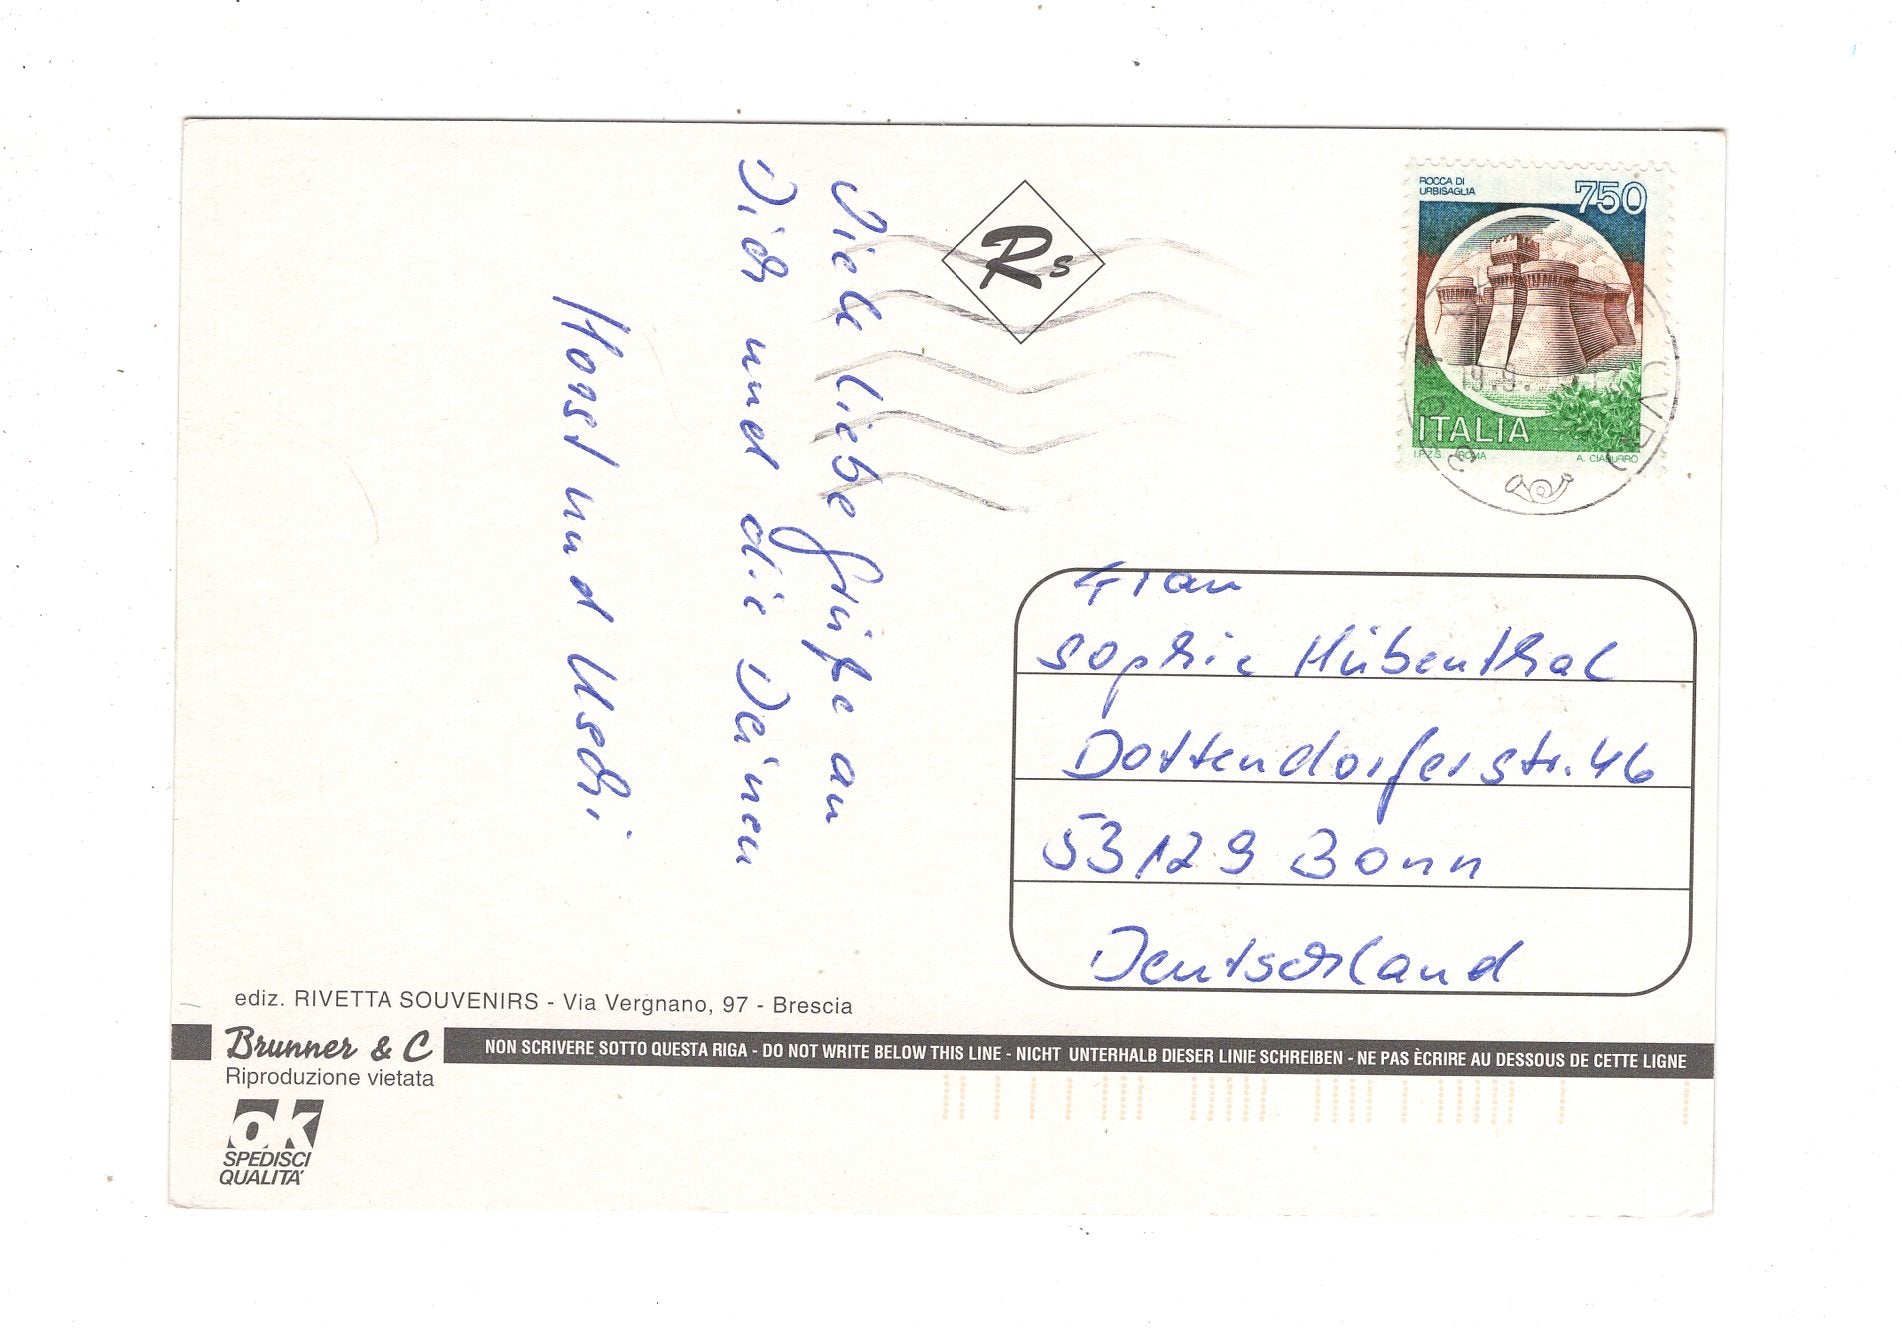 Viele liebe Grüße an
Dich und die Deinen
Horst und Uschi
Rs
ROCCA DI
URBISAGLIA
750
ITALIA
I.P.Z.S. ROMA
A. CIABURRO
19.9.
Frau
Sophie Hübenthal
Dottendorferstr. 46
53129 Bonn
Deutschland
ediz. RIVETTA SOUVENIRS - Via Vergnano, 97 - Brescia
Brunner & C
NON SCRIVERE SOTTO QUESTA RIGA - DO NOT WRITE BELOW THIS LINE - NICHT UNTERHALB DIESER LINIE SCHREIBEN - NE PAS ÈCRIRE AU DESSOUS DE CETTE LIGNE
Riproduzione vietata
OK
SPEDISCI
QUALITA'